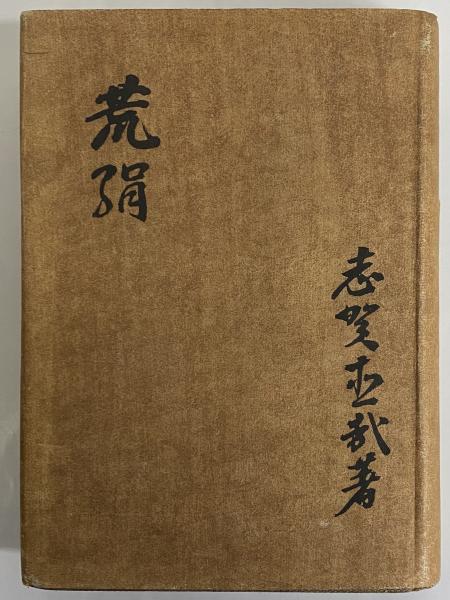 荒絹
志賀直哉著